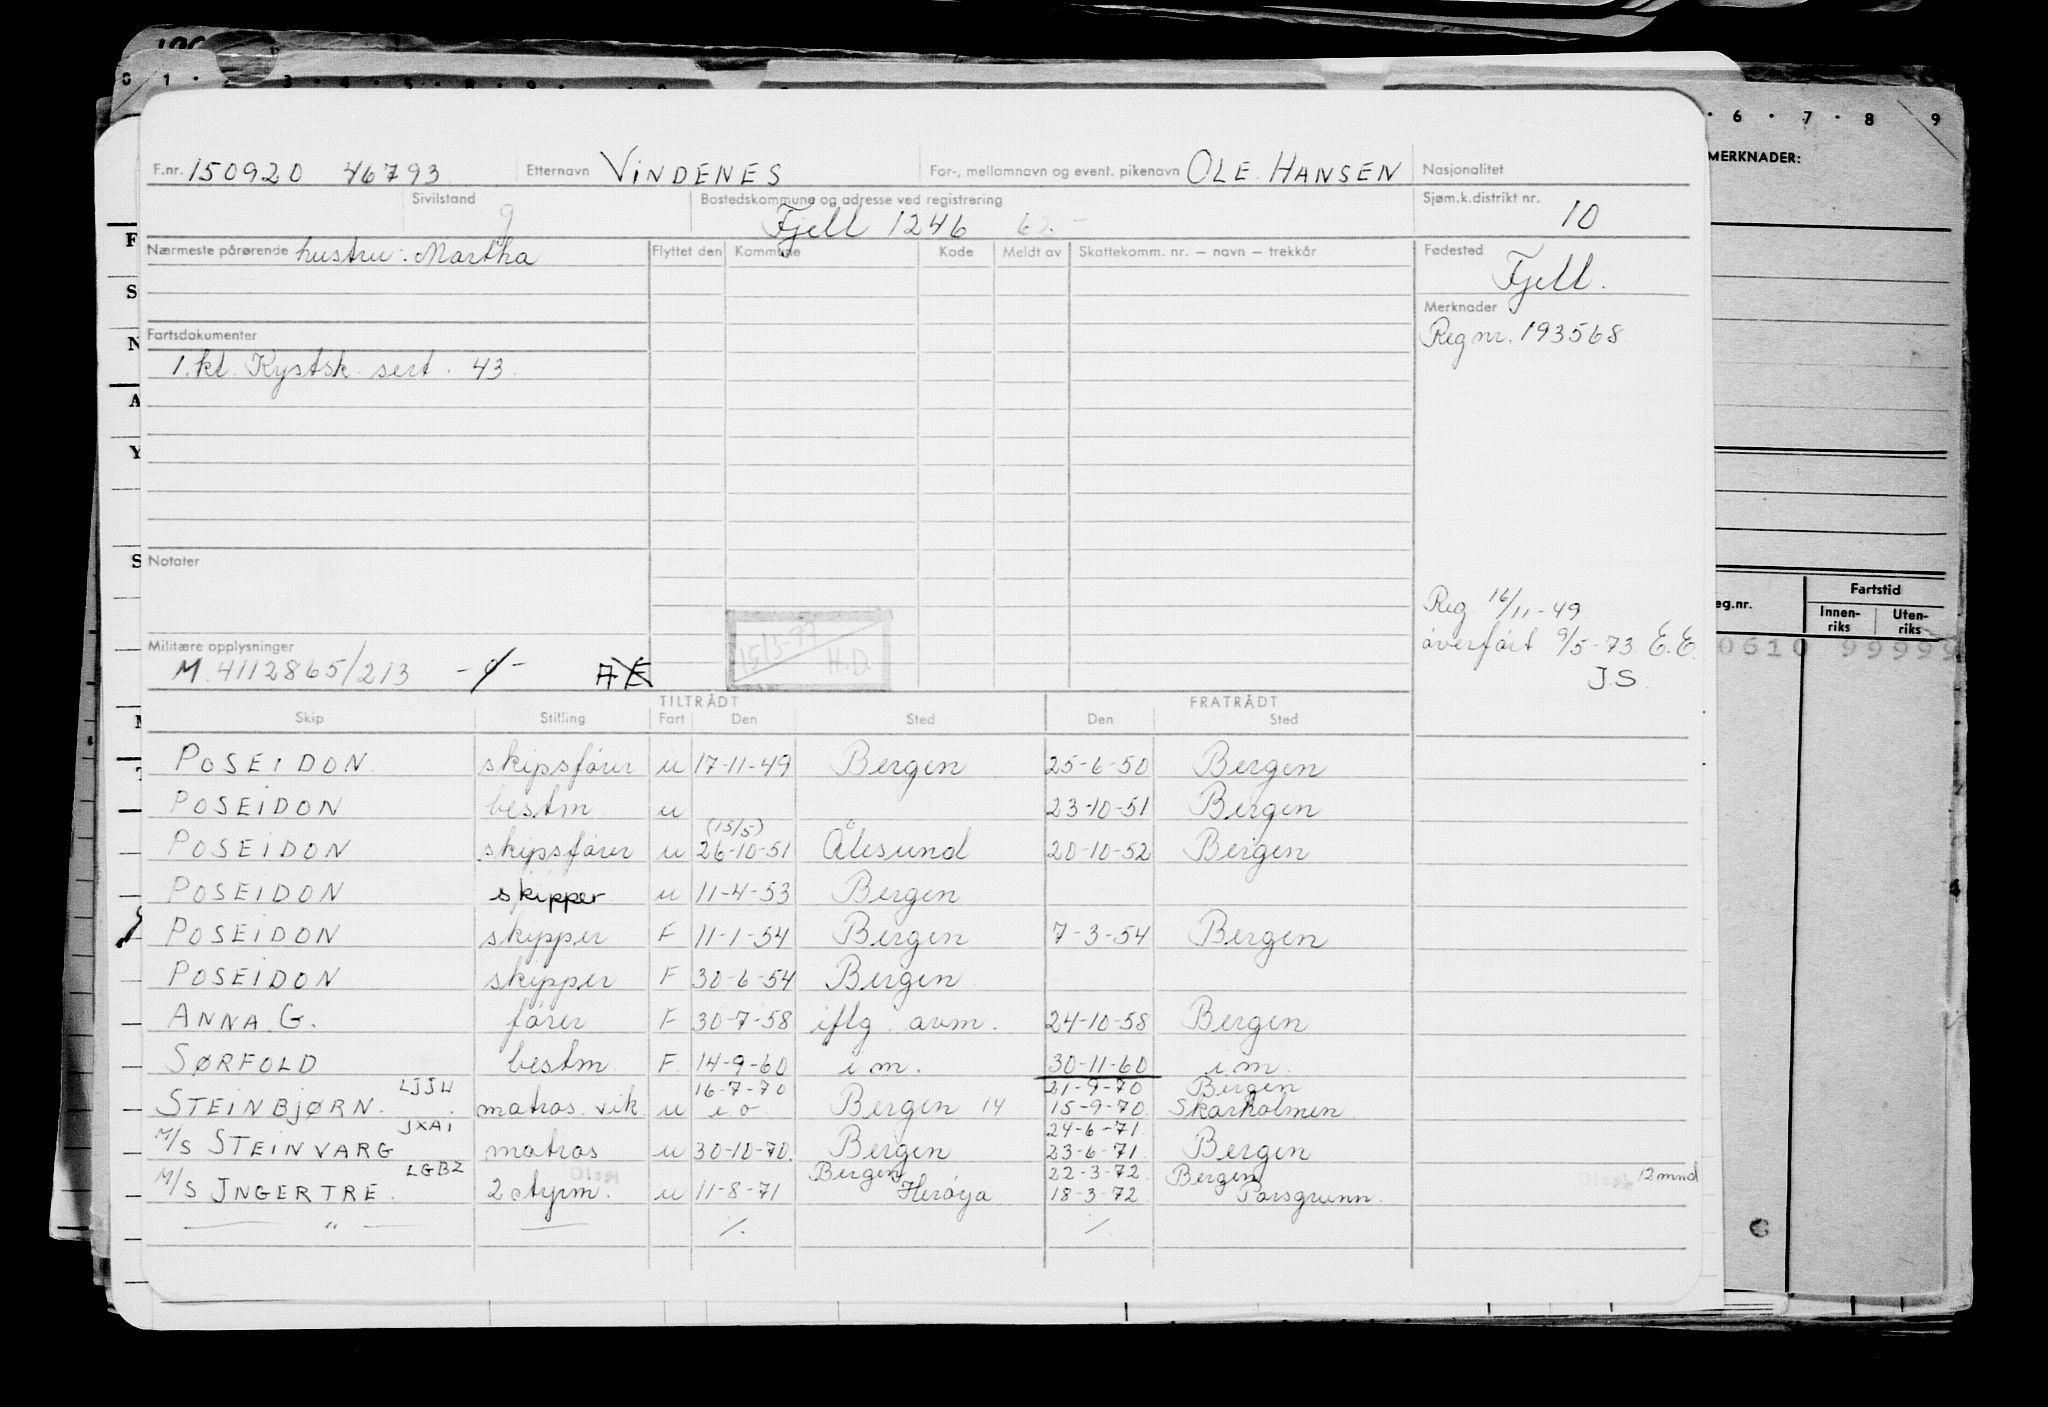 0 1 · 3 · 4 · 5 · 8 · 9 ·
· 6 · 7 · 8 9
MERKNADER:
F.nr. 150920 46793 Etternavn VINDENES For-, mellomnavn og event. pikenavn OLE HANSEN Nasjonalitet
Sivilstand g Bostedskommune og adresse ved registrering Fjell 1246 62.- Sjøm.k.distrikt nr. 10
Nærmeste pårørende hustru: Martha Flyttet den Kommune Kode Meldt av Skattekomm. nr. — navn — trekkår Fødested Fjell.
Merknader
Reg nr. 193568
Fartsdokumenter
1. kl. Kystsk. sert. 43.
Notater
Reg. 16/11-49
overført 9/5-73 E.E.
J.S.
Militære opplysninger
M. 4112865/213 AE
H.D.
eg.nr. Fartstid
Innen-riks Uten-riks
0610 99999
TILTRÅDT FRATRÅDT
Skip Stilling Fart Den Sted Den Sted
POSEIDON skipsfører u 17-11-49 Bergen 25-6-50 Bergen
POSEIDON bestm. u 23-10-51 Bergen
(15/5)
POSEIDON skipsfører u 26-10-51 Ålesund 20-10-52 Bergen
POSEIDON skipper u 11-4-53 Bergen
POSEIDON skipper F 11-1-54 Bergen 7-3-54 Bergen
POSEIDON skipper F 30-6-54 Bergen
ANNA G. fører F 30-7-58 iflg. avm. 24-10-58 Bergen
SØRFOLD bestm F. 14-9-60 i m. 30-11-60 i m.
LJJH 16-7-70 21-9-70 Bergen
STEINBJØRN. matros vik. u i o Bergen 14 15-9-70 Skarholmen
JXAI 24-6-71
M/S STEINVARG matros u 30-10-70. Bergen 23-6-71 Bergen
LGBZ Bergen 22-3-72 Bergen 12 mnd
M/S INGERTRE. 2 styrm. u 11-8-71 Herøya 18-3-72 Porsgrunn.
— " — — ·/. ·/.